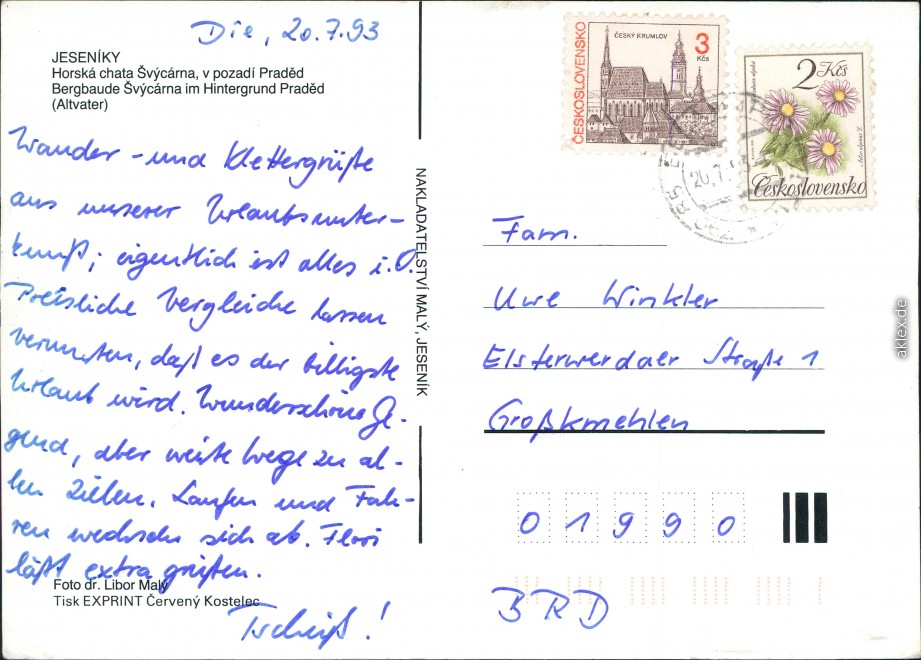 Die, 20.7.93
JESENÍKY
Horská chata Švýcárna, v pozadí Praděd
Bergbaude Švýcárna im Hintergrund Praděd
(Altvater)
Wander- und Klettergrüße
aus unserer Urlaubsunter-
kunft; eigentlich ist alles i.O.
Preisliche Vergleiche lassen
vermuten, daß es der billigste
Urlaub wird. Wunderschöne Ge-
gend, aber weite Wege zu al-
len Zielen. Laufen und Fah-
ren wechseln sich ab. Flori
läßt extra grüßen.
Tschüß!
Foto dr. Libor Malý
Tisk EXPRINT Červený Kostelec
NAKLADATELSTVÍ MALÝ, JESENÍK
ČESKOSLOVENSKO
ČESKÝ KRUMLOV
3
Kčs
2 Kčs
Aster alpinus L.
Československo
20.7.
Fam.
Uwe Winkler
Elsterwerdaer Straße 1
Großkmehlen
01990
BRD
aklex.de